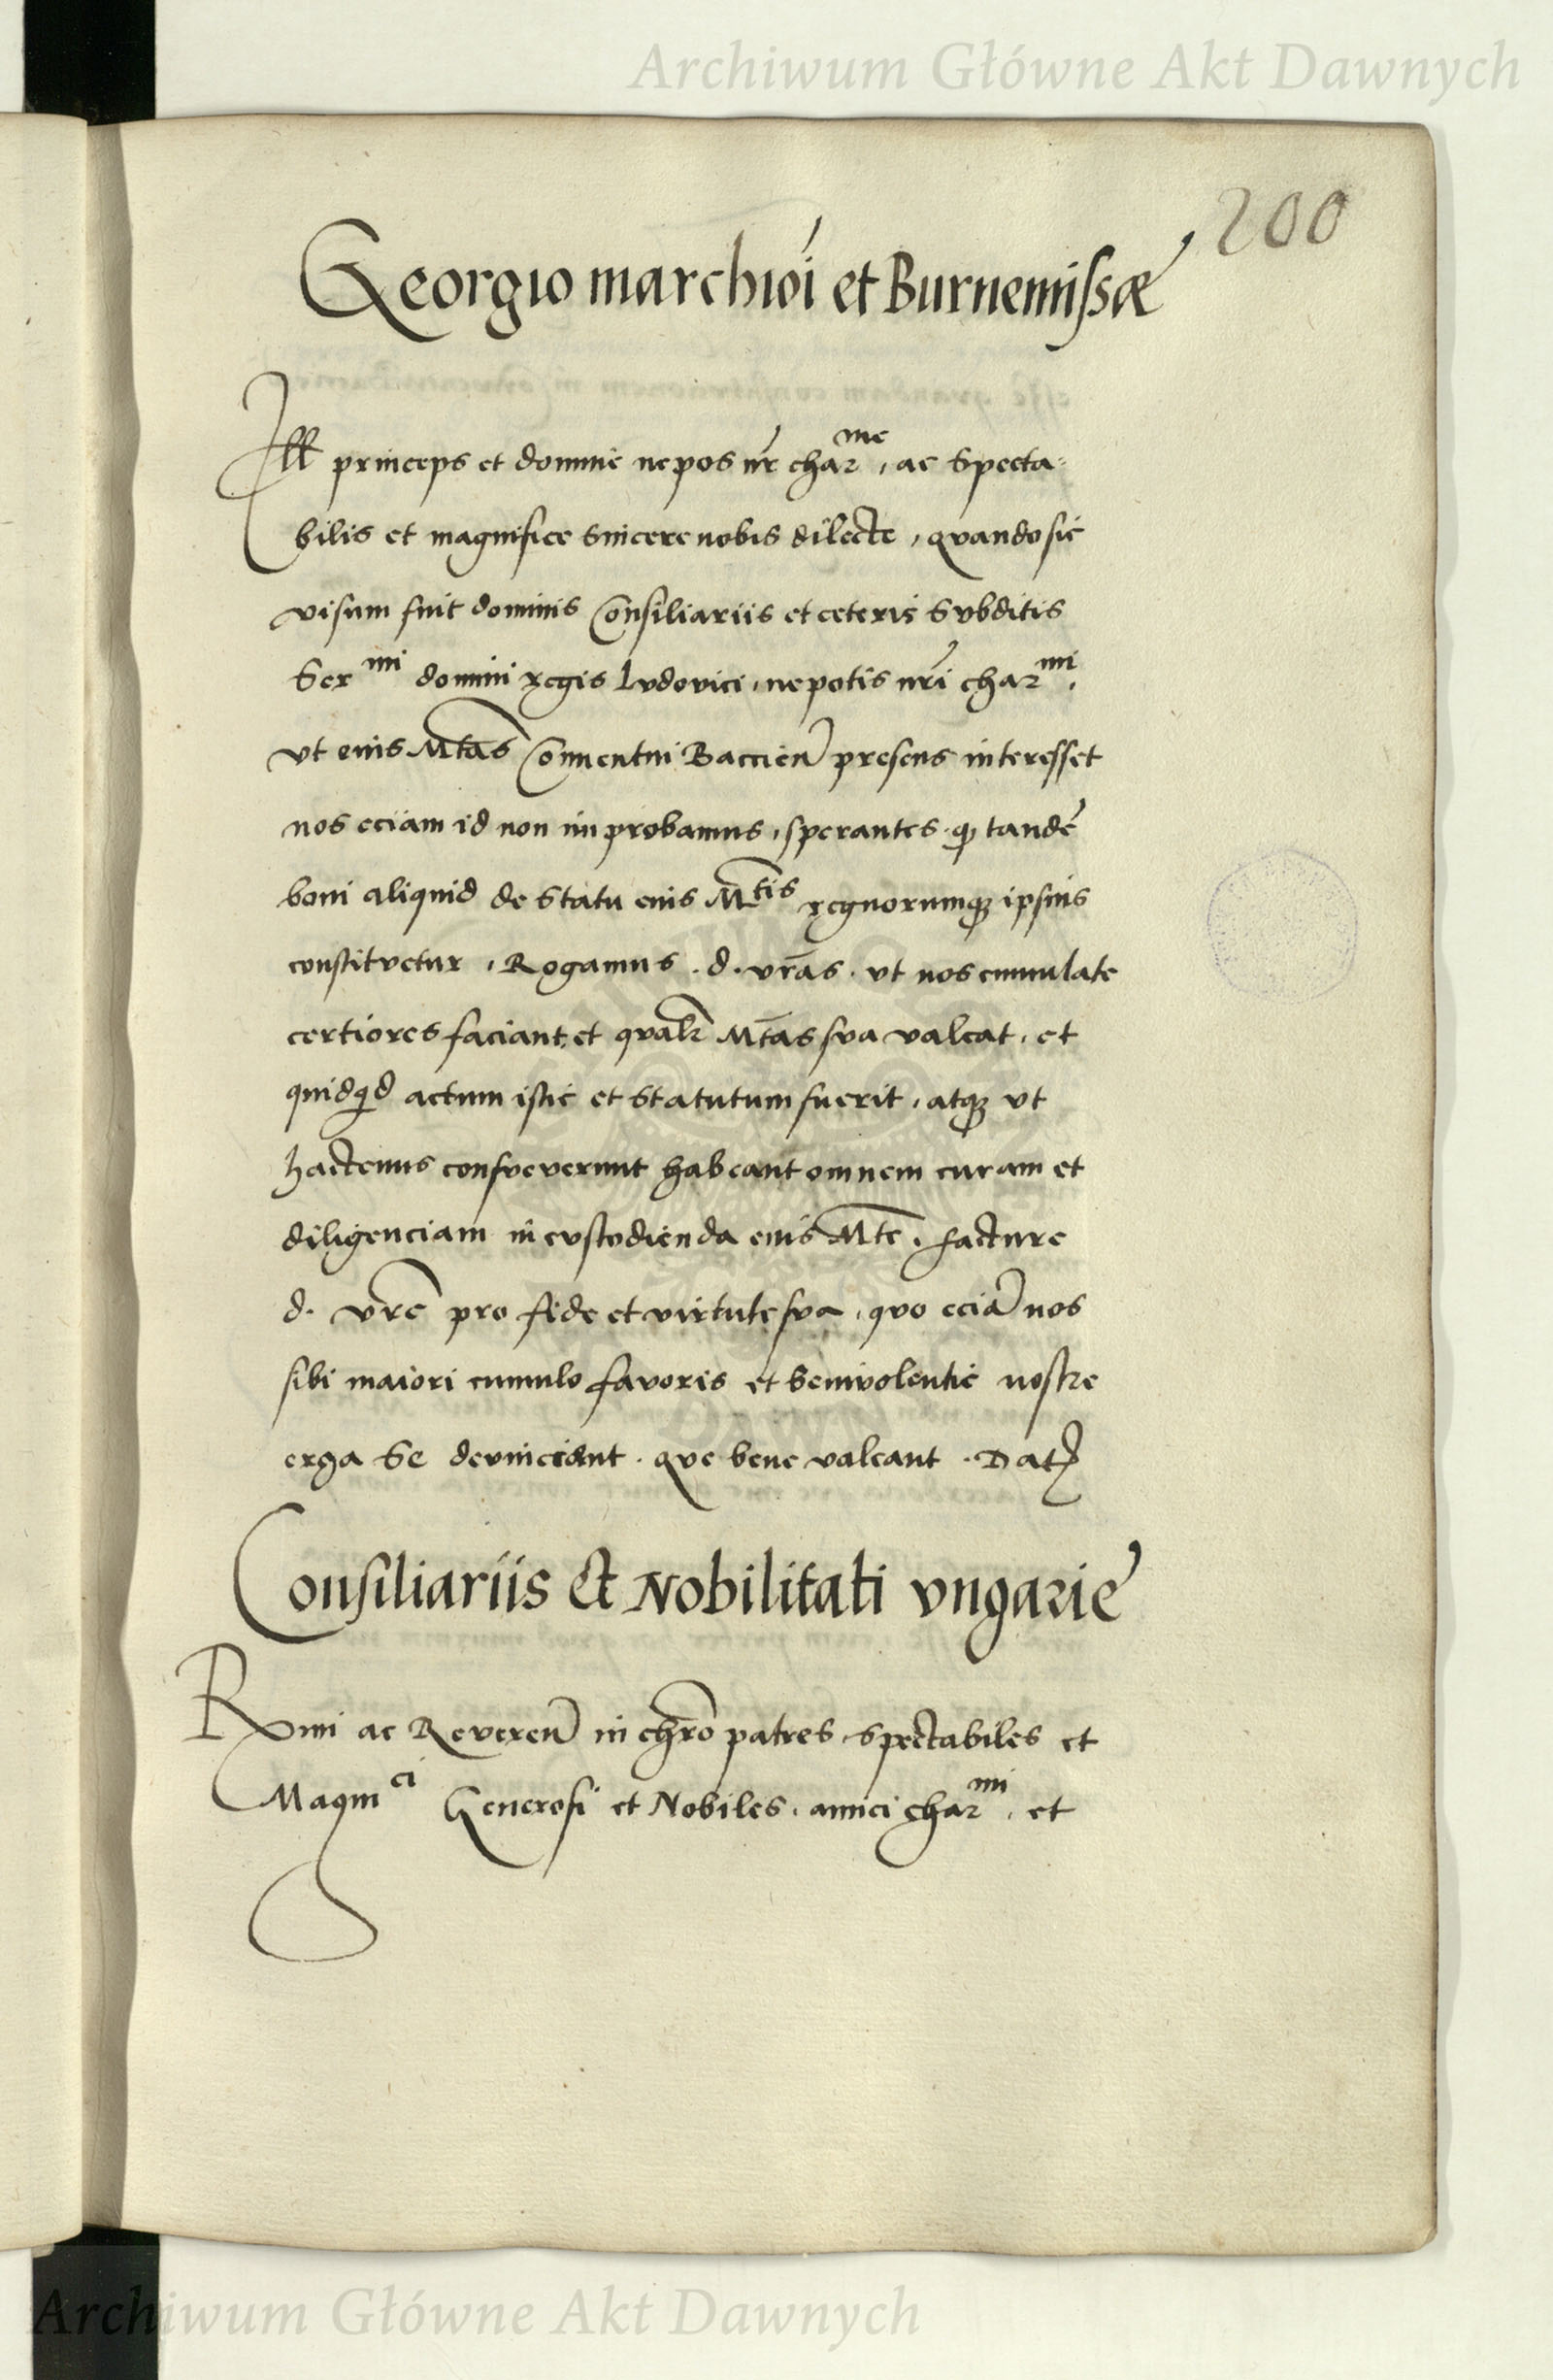 Archiwum Główne Akt Dawnych
200
Georgio marchiōi et Burnemissæ
Ill princeps et domine nepos nr̄ charme, ac Specta-
bilis et magnifice Sincere nobis dilecte, quando sic
visum fuit dominis Consiliariis et ceteris Subditis
Sermi domini regis Ludovici, nepotis nr̄i charmi,
vt eius Mt̄as Conuentui Baccien̄ presens interesset
nos eciam id non improbamus, sperantes q̄ tandē
boni aliquid de Statu eius Mtis regnorumq; ipsius
constituetur, Rogamus .d. vr̄as. vt nos cumulate
certiores faciant, et qualr̄ Mt̄as sua valeat, et
quidq̄d actum istic et Statutum fuerit, atq; vt
hactenus consueverunt habeant omnem curam et
diligenciam in custodienda eius Mt̄e, facture
d. vr̄e pro fide et virtute sua, quo eciā nos
sibi maiori cumulo favoris et benivolentie nostre
erga Se devinciant. que bene valeant. Dat
Consiliariis Et Nobilitati vngarie
Rmi ac Reveren̄ in chr̄o patres, Spectabiles et
Magnici Generosi et Nobiles, amici charmi, et
Archiwum Główne Akt Dawnych